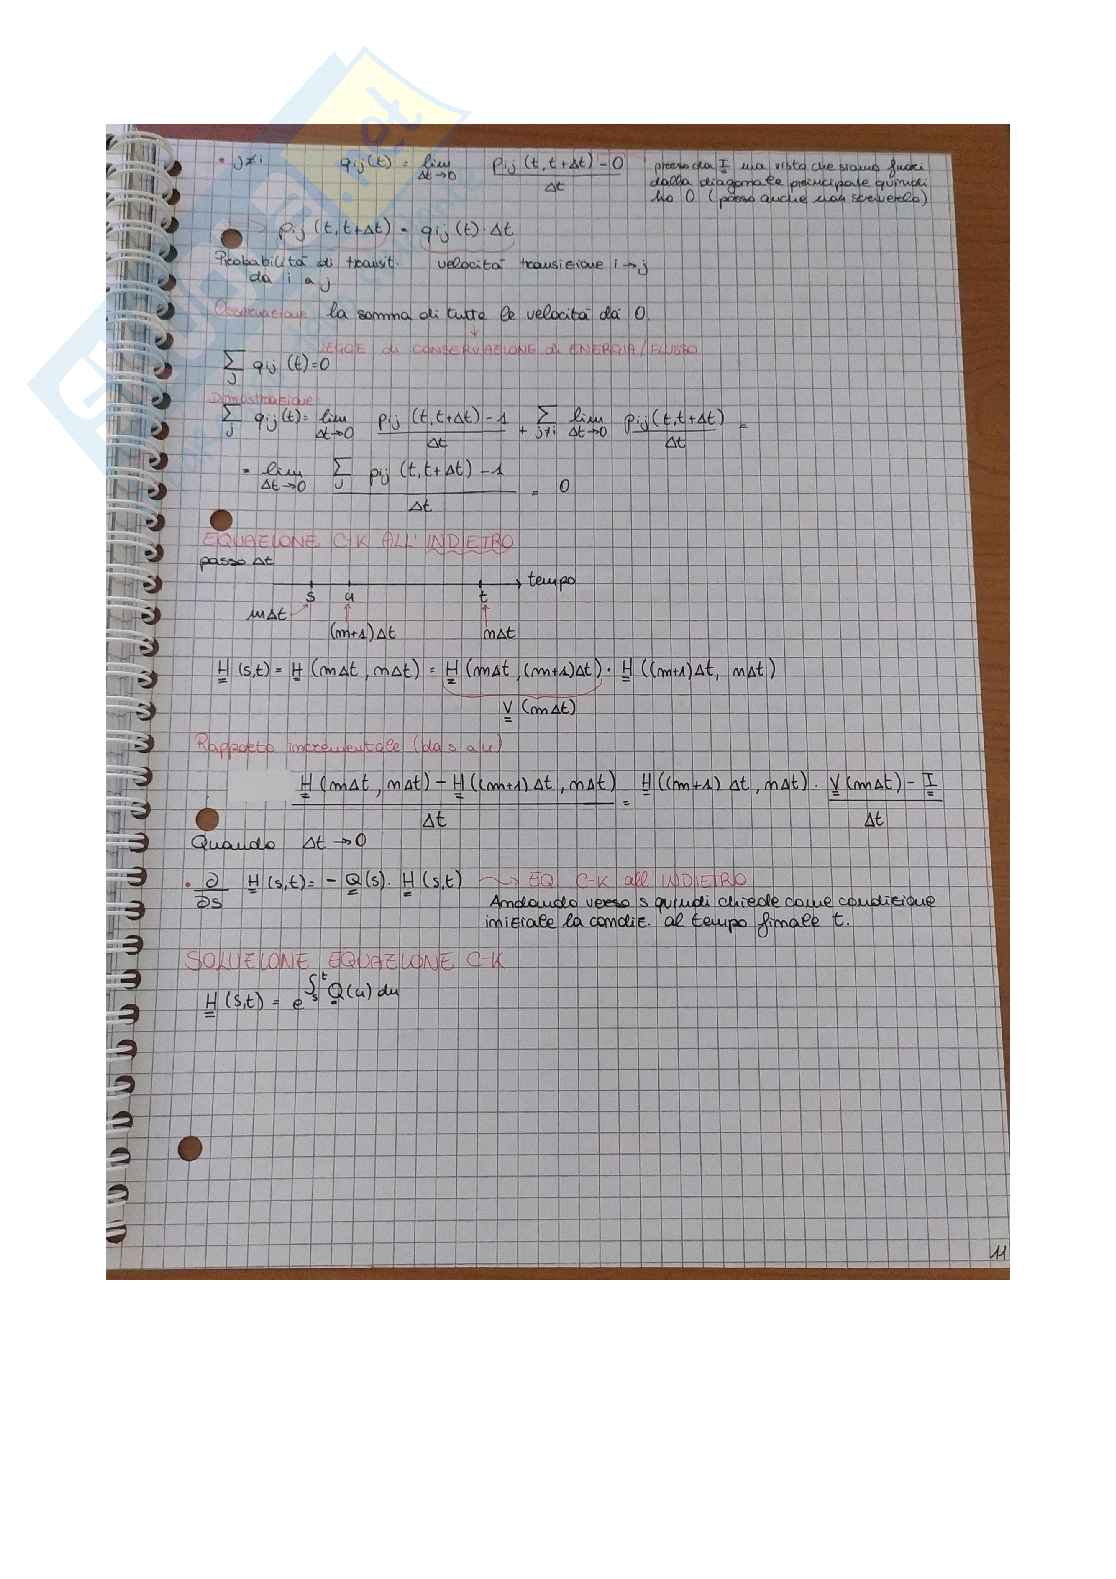 • j≠i   qij(t) = lim Δt→0   pij (t, t+Δt) – 0 / Δt   preso da I ma visto che siamo fuori
dalla diagonale principale quindi
ho 0 (posso anche non scriverlo)
pij (t, t+Δt) = qij (t) · Δt
Probabilità di transit.   velocità transizione i → j
da i a j
Osservazione la somma di tutte le velocità dà 0
LEGGE di CONSERVAZIONE di ENERGIA/FLUSSO
∑j qij (t) = 0
Dimostrazione
∑j qij(t) = lim Δt→0 pij (t, t+Δt) – 1 / Δt + ∑j≠i lim Δt→0 pij (t, t+Δt) / Δt =
= lim Δt→0 ∑j pij (t, t+Δt) – 1 / Δt = 0
EQUAZIONE C-K ALL'INDIETRO
passo Δt
tempo
s u t
mΔt
(m+1)Δt   nΔt
H (s,t) = H (mΔt, nΔt) = H (mΔt, (m+1)Δt) · H ((m+1)Δt, nΔt)
V (mΔt)
Rapporto incrementale (da s a u)
H (mΔt, nΔt) – H ((m+1)Δt, nΔt) / Δt = H ((m+1)Δt, nΔt) · V (mΔt) – I / Δt
Quando Δt → 0
• ∂/∂s H (s,t) = – Q (s) · H (s,t) ⟿ EQ. C-K all'INDIETRO
Andando verso s quindi chiede come condizione
iniziale la condiz. al tempo finale t.
SOLUZIONE EQUAZIONE C-K
H (s,t) = e^∫s^t Q(u) du
11